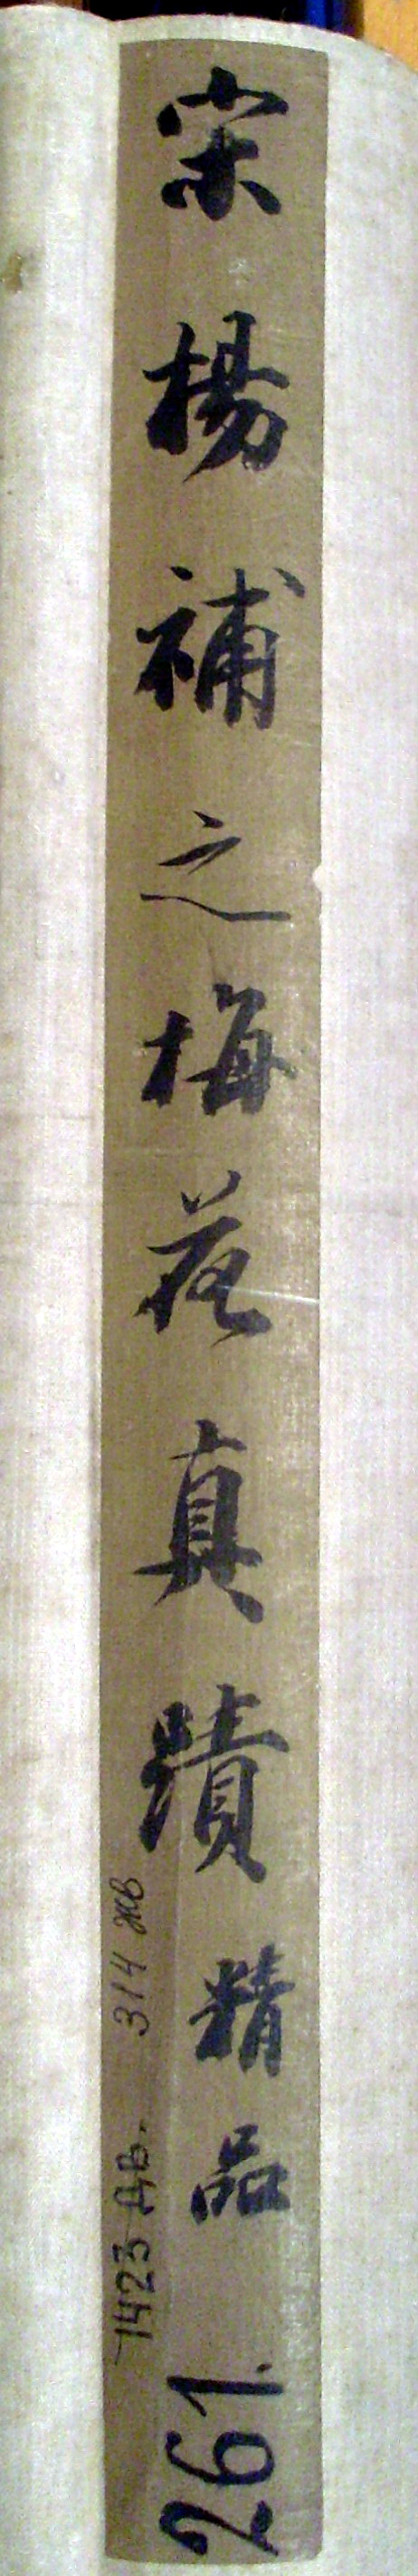 宋楊補之梅花真蹟精品
314 жв
1423 дв.
261.